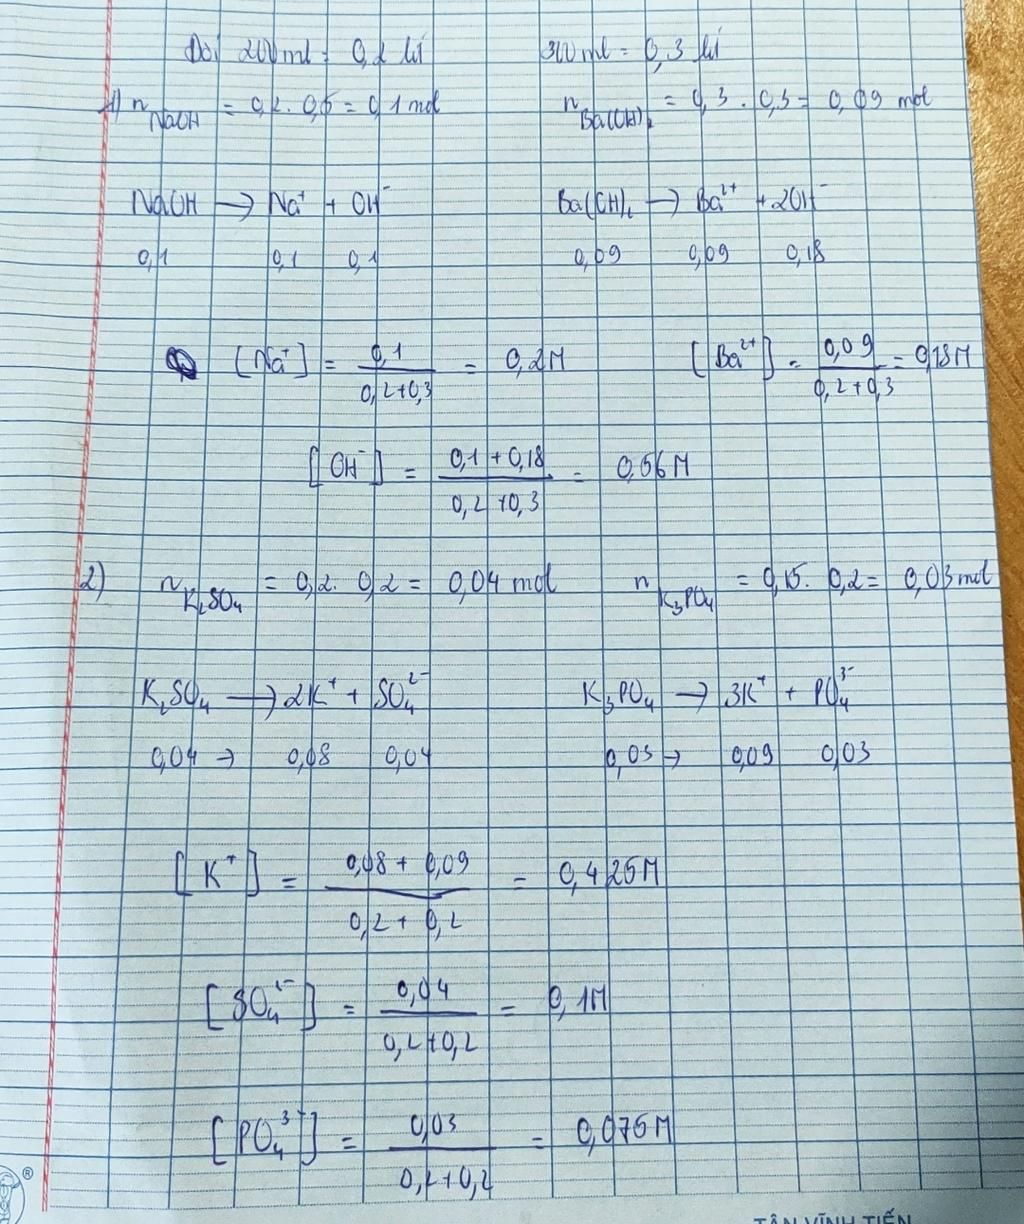 Đổi 200ml = 0,2 lít 300ml = 0,3 lít
1) n NaOH = 0,2 . 0,5 = 0,1 mol n Ba(OH)₂ = 0,3 . 0,3 = 0,09 mol
NaOH → Na⁺ + OH⁻ Ba(OH)₂ → Ba²⁺ + 2OH⁻
0,1 0,1 0,1 0,09 0,09 0,18
[Na⁺] = 0,1 / 0,2+0,3 = 0,2M [Ba²⁺] = 0,09 / 0,2+0,3 = 0,18M
[OH⁻] = 0,1 + 0,18 / 0,2 + 0,3 = 0,56M
2) n K₂SO₄ = 0,2 . 0,2 = 0,04 mol n K₃PO₄ = 0,15 . 0,2 = 0,03 mol
K₂SO₄ → 2K⁺ + SO₄²⁻ K₃PO₄ → 3K⁺ + PO₄³⁻
0,04 → 0,08 0,04 0,03 → 0,09 0,03
[K⁺] = 0,08 + 0,09 / 0,2 + 0,2 = 0,425M
[SO₄²⁻] = 0,04 / 0,2+0,2 = 0,1M
[PO₄³⁻] = 0,03 / 0,2+0,2 = 0,075M
®
TÂN VĨNH TIẾN